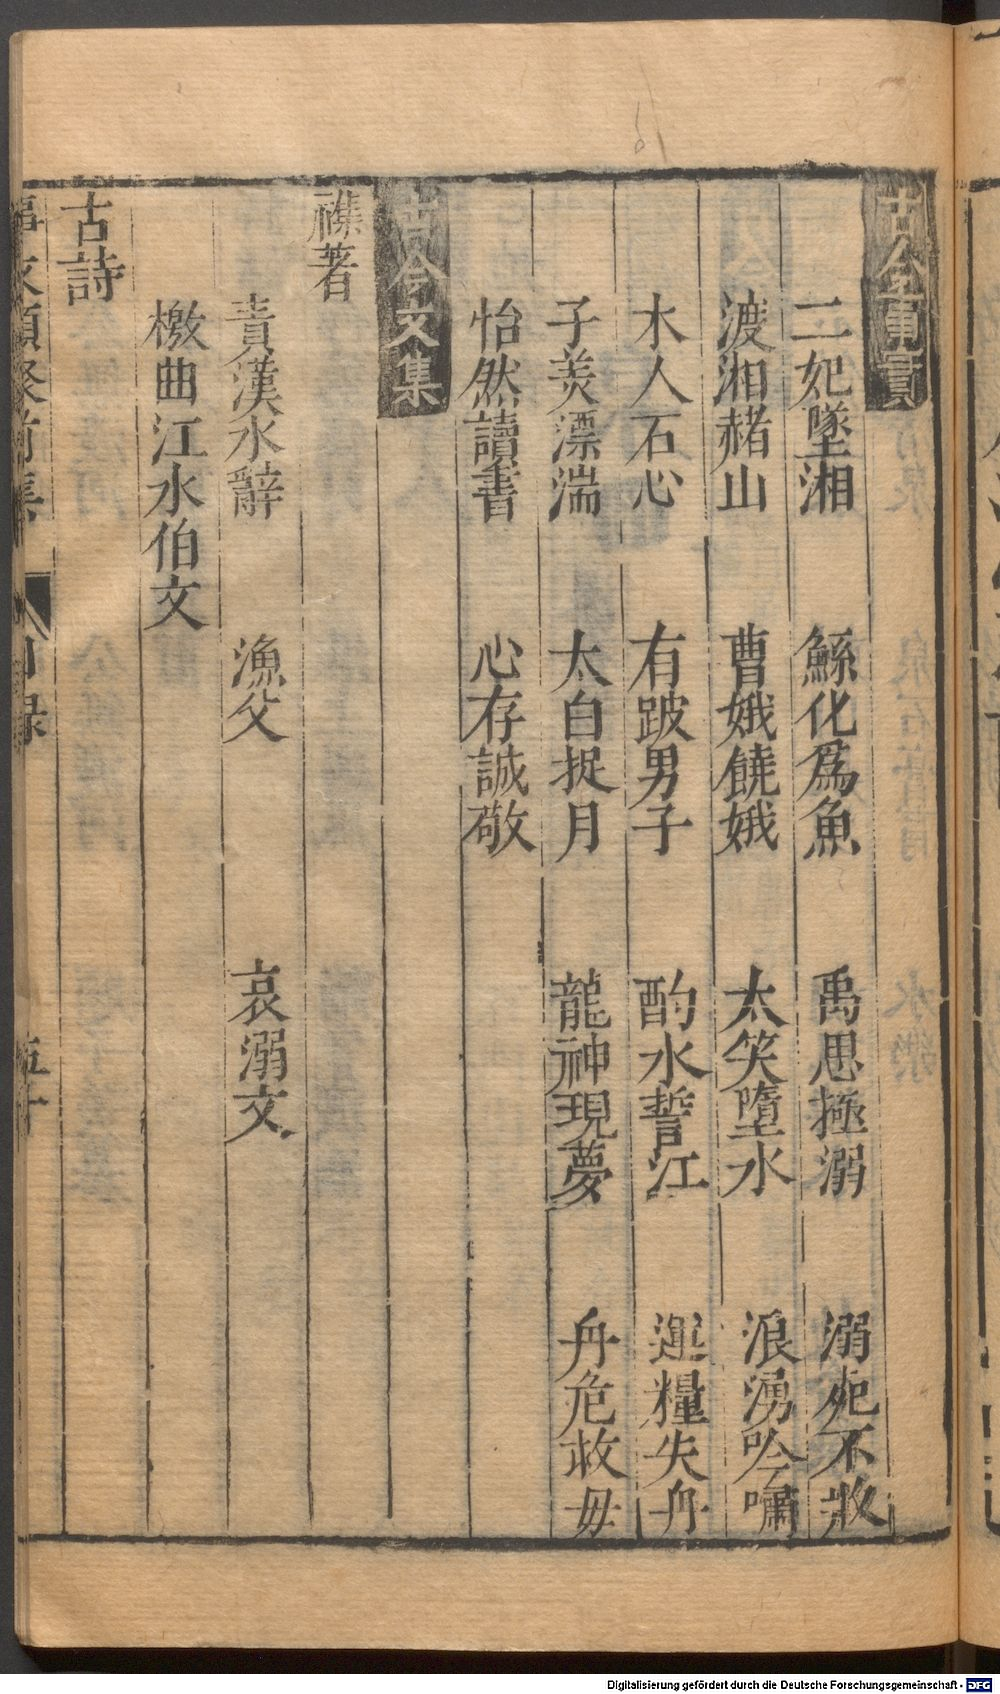 古今事實
二妃墜湘　鯀化爲魚　禹思拯溺　溺死不救
渡湘赭山　曹娥饒娥　太笑墮水　浪湧吟嘯
木人石心　有跛男子　酌水誓江　運糧失舟
子羙漂湍　太白捉月　龍神現夢　舟危救母
怡然讀書　心存誠敬
古今文集
襍著
責漢水辭　漁父　哀溺文
檄曲江水伯文
古詩
事文類聚前集　目録　五十
Digitalisierung gefördert durch die Deutsche Forschungsgemeinschaft - DFG